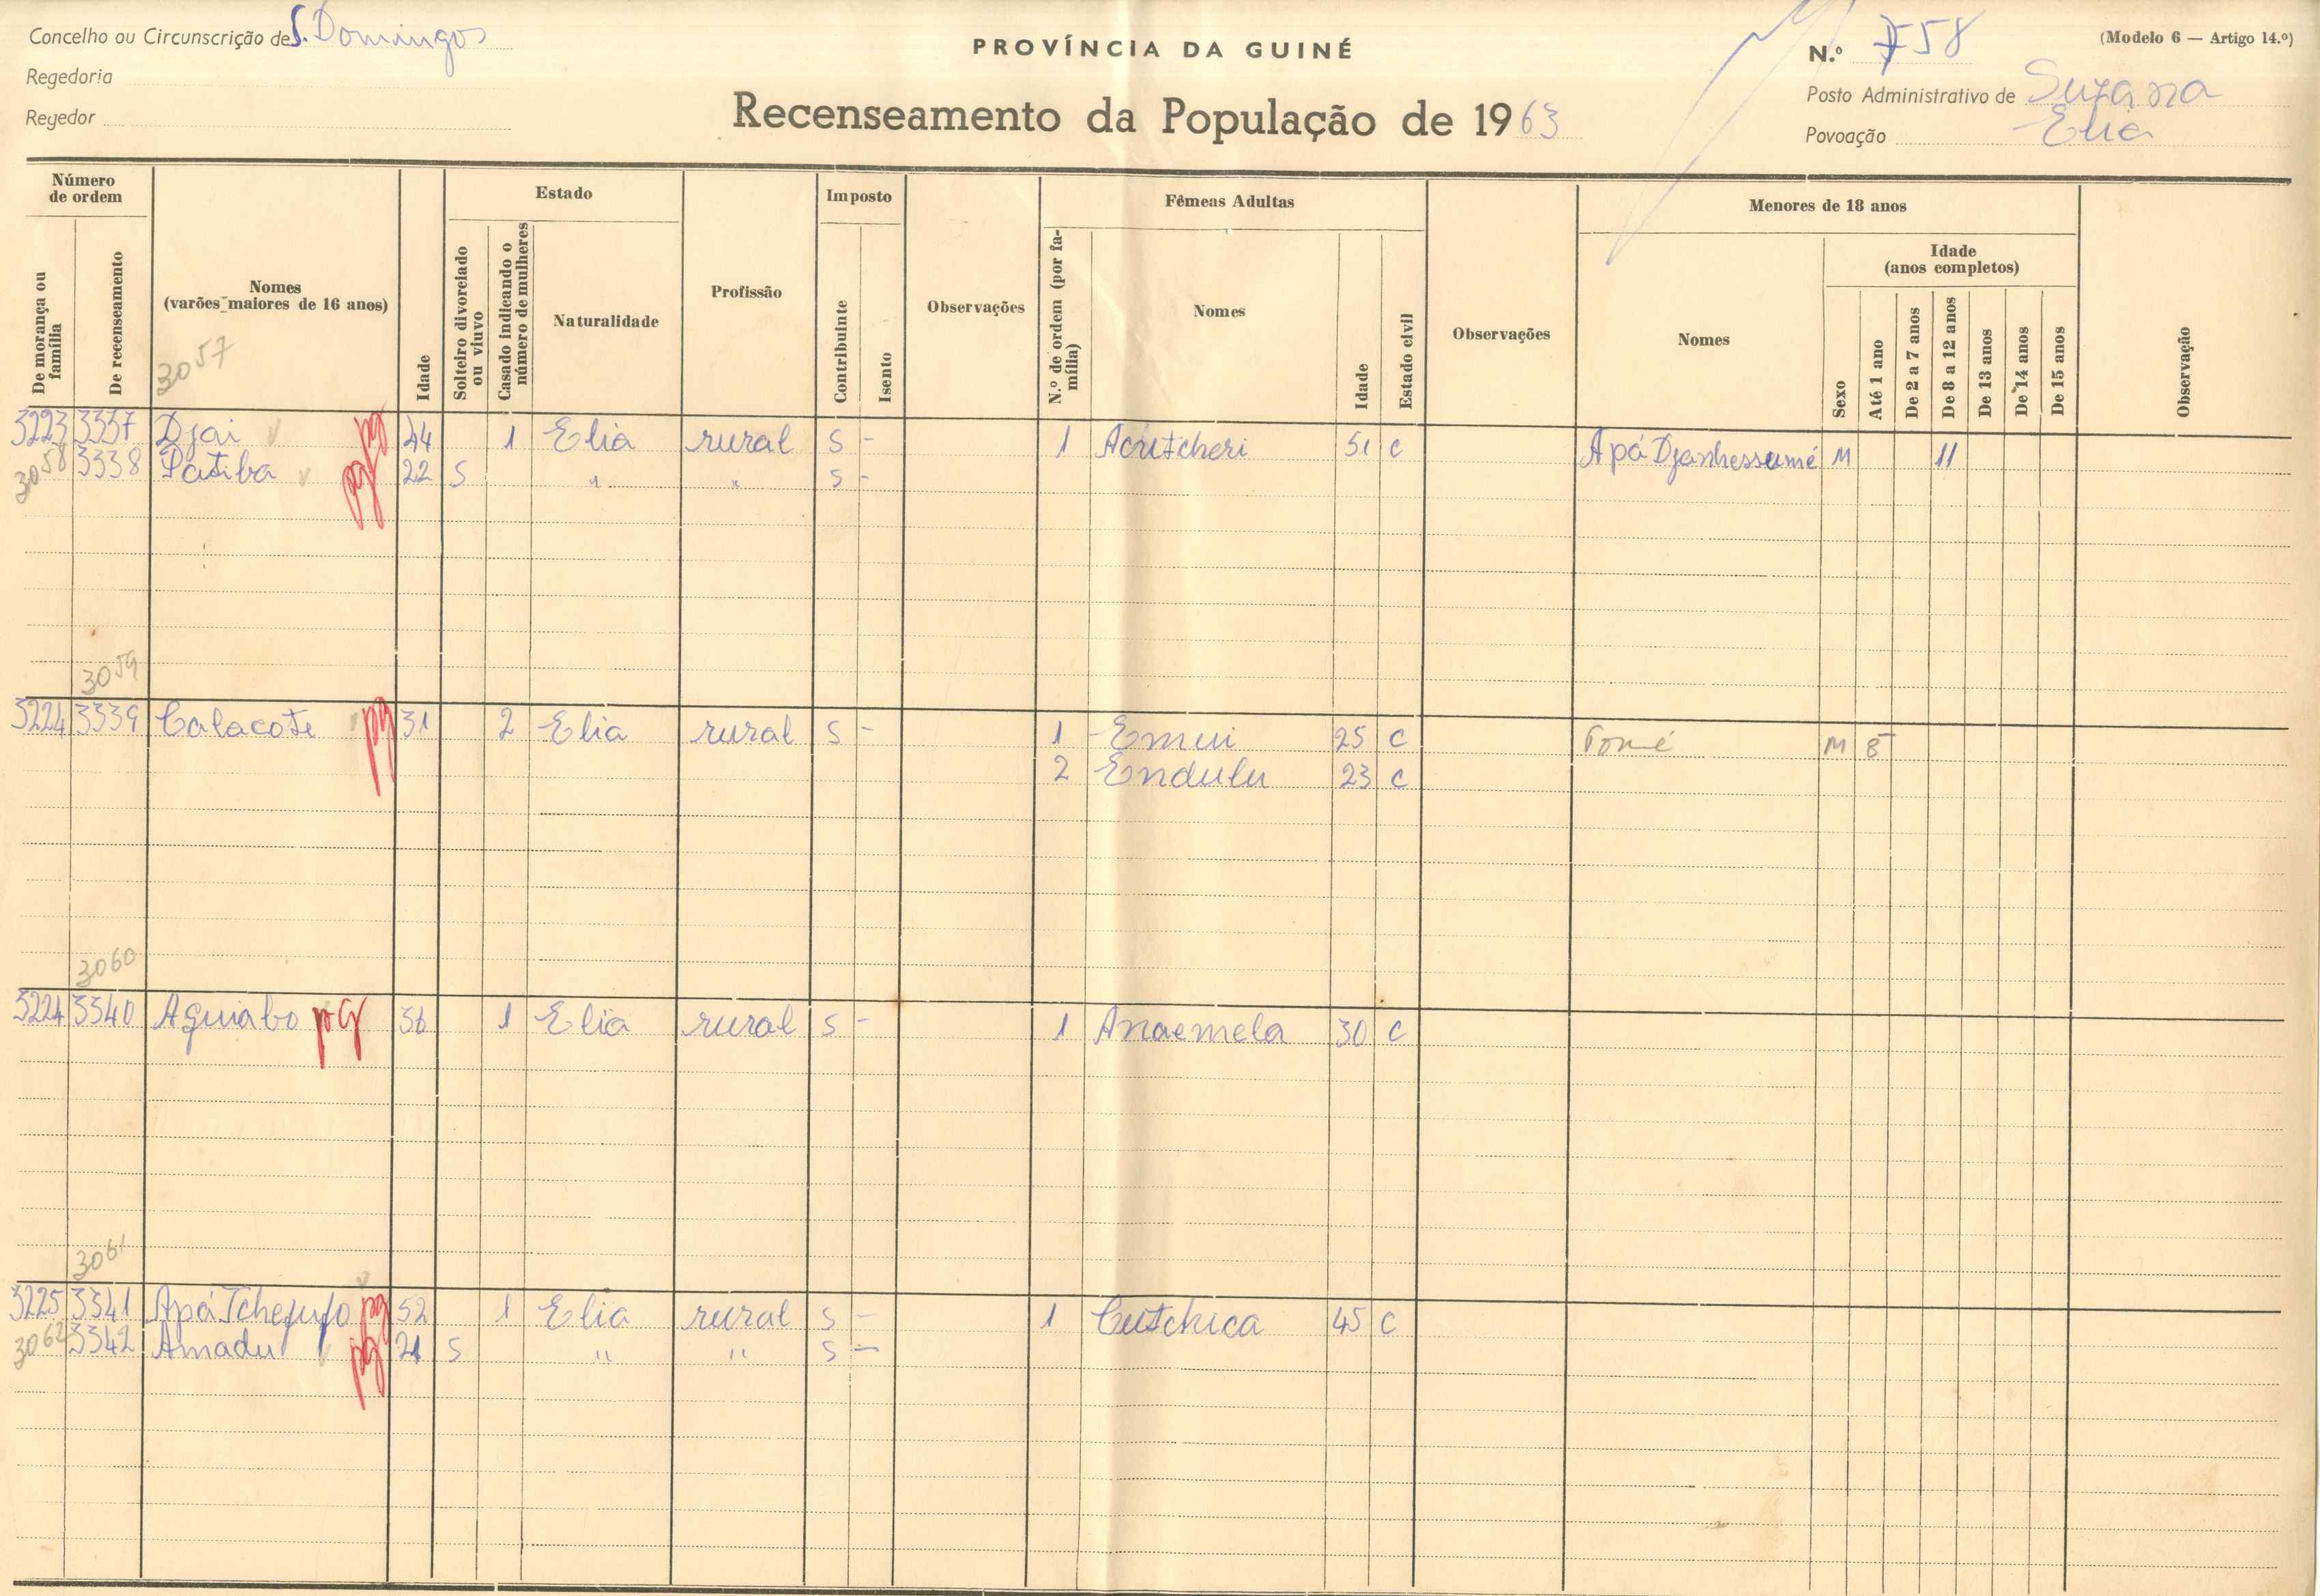 Concelho ou Circunscrição de S. Domingos
Regedoria
Regedor
PROVÍNCIA DA GUINÉ
Recenseamento da População de 1963
N.º 758
(Modelo 6 — Artigo 14.º)
Posto Administrativo de Suzana
Povoação Elia
Número de ordem
De morança ou família
De recenseamento
Nomes
(varões maiores de 16 anos)
Idade
Estado
Solteiro divorciado ou viuvo
Casado indicando o número de mulheres
Naturalidade
Profissão
Imposto
Contribuinte
Isento
Observações
Fêmeas Adultas
N.º de ordem (por família)
Nomes
Idade
Estado civil
Observações
Menores de 18 anos
Nomes
Sexo
Idade
(anos completos)
Até 1 ano
De 2 a 7 anos
De 8 a 12 anos
De 13 anos
De 14 anos
De 15 anos
Observação
3057
3223 3337 Djai pg 44 1 Elia rural S - 1 Acutcheri 51 C Apá Djanhessumé M 11
3058 3338 Patiba pg 22 S " " S -
3059
3224 3339 Calacote pg 31 2 Elia rural S - 1 Emui 25 C Tomé M 8
2 Endulu 23 C
3060
3224 3340 Aguiabo pg 36 1 Elia rural S - 1 Anaemela 30 C
3061
3225 3341 Apá pg 52 1 Elia rural S - 1 Cutchica 45 C
3062 3342 Amadu pg 21 S " " S -